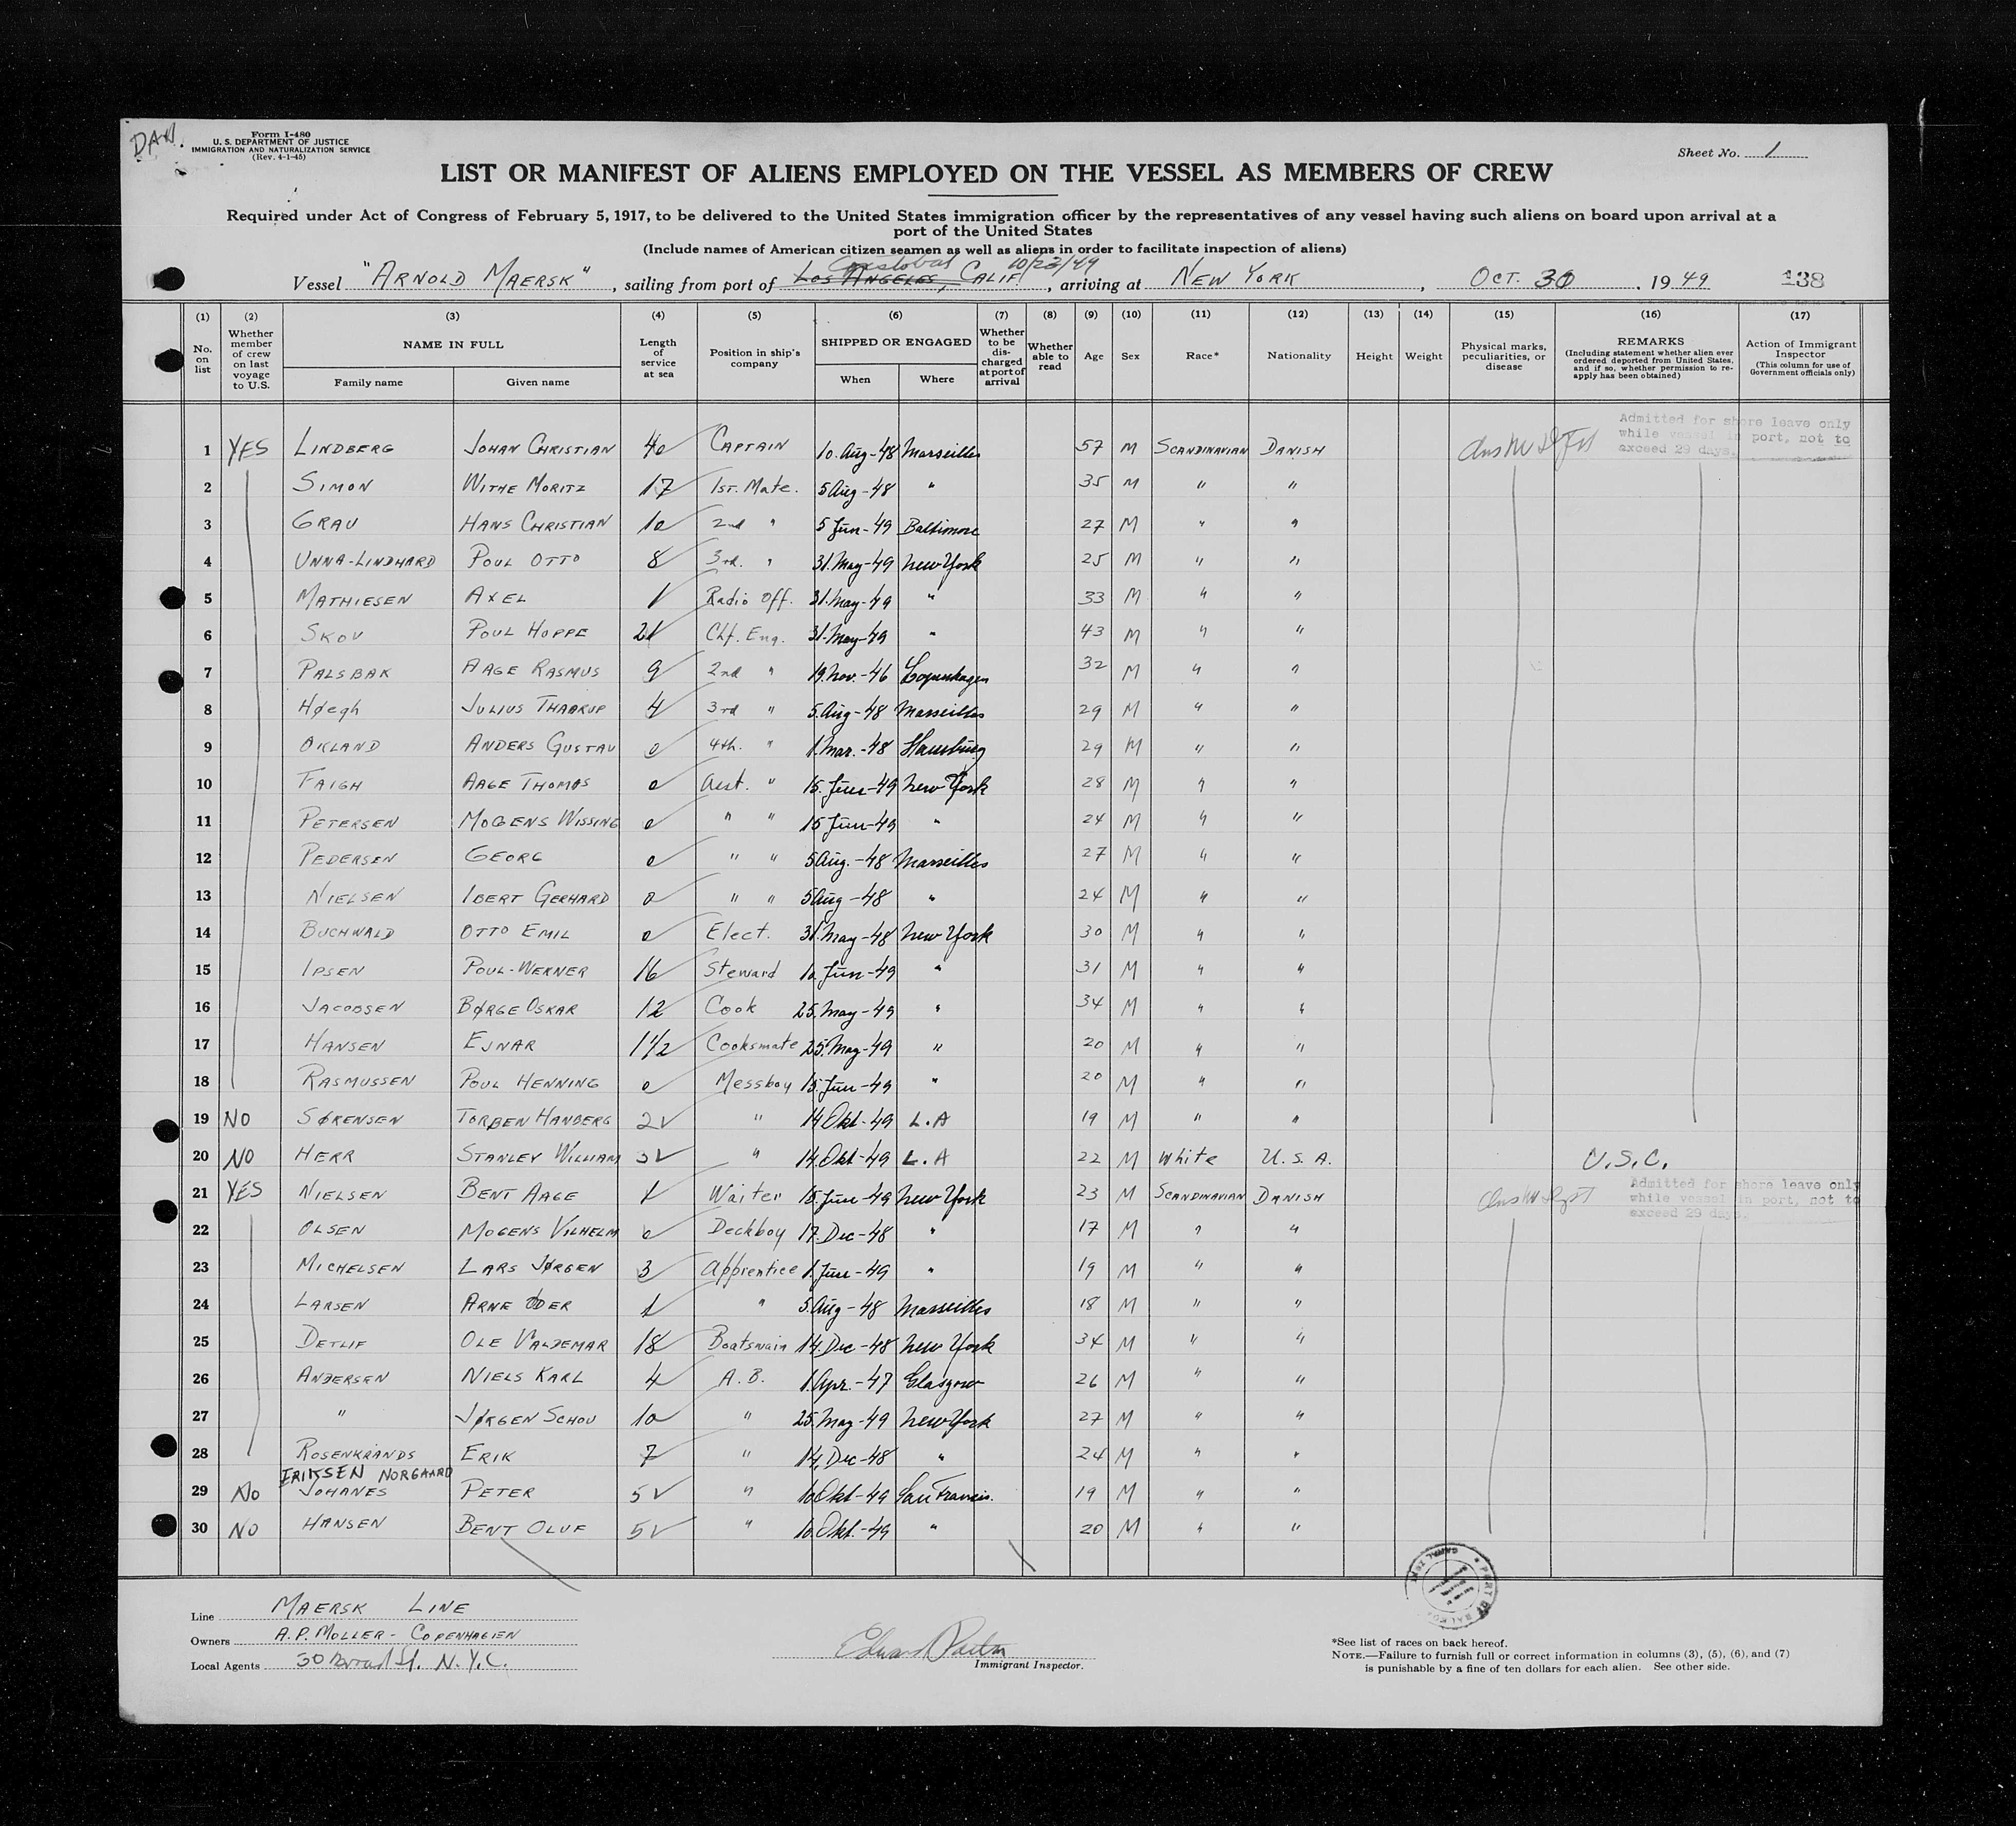 DAN.
Form I-480
U. S. DEPARTMENT OF JUSTICE
IMMIGRATION AND NATURALIZATION SERVICE
(Rev. 4-1-45)
Sheet No. 1
LIST OR MANIFEST OF ALIENS EMPLOYED ON THE VESSEL AS MEMBERS OF CREW
Required under Act of Congress of February 5, 1917, to be delivered to the United States immigration officer by the representatives of any vessel having such aliens on board upon arrival at a
port of the United States
(Include names of American citizen seamen as well as aliens in order to facilitate inspection of aliens)
Cristobal 10/23/49
Vessel "ARNOLD MAERSK", sailing from port of LOS ANGELES, CALIF., arriving at NEW YORK, OCT. 30, 1949 138
(1) (2) (3) (4) (5) (6) (7) (8) (9) (10) (11) (12) (13) (14) (15) (16) (17)
No. on list
Whether member of crew on last voyage to U.S.
NAME IN FULL
Family name
Given name
Length of service at sea
Position in ship's company
SHIPPED OR ENGAGED
When
Where
Whether to be discharged at port of arrival
Whether able to read
Age
Sex
Race*
Nationality
Height
Weight
Physical marks, peculiarities, or disease
REMARKS
(Including statement whether alien ever ordered deported from United States, and if so, whether permission to re-apply has been obtained)
Action of Immigrant Inspector
(This column for use of Government officials only)
Admitted for shore leave only
while vessel in port, not to
exceed 29 days.
1 YES LINDBERG JOHAN CHRISTIAN 40 CAPTAIN 10. Aug-48 Marseilles 57 M SCANDINAVIAN DANISH
2 SIMON WITHE MORITZ 17 1ST. Mate. 5 Aug-48 " 35 M " "
3 GRAU HANS CHRISTIAN 10 2nd " 5 Jun-49 Baltimore 27 M " "
4 UNNA-LINDHARD POUL OTTO 8 3rd. " 31. May-49 New York 25 M " "
5 MATHIESEN AXEL 1 Radio Off. 31. May-49 " 33 M " "
6 SKOV POUL HOPPE 21 Chf. Eng. 31. May-49 " 43 M " "
7 PALSBAK AAGE RASMUS 9 2nd " 19. Nov.-46 Copenhagen 32 M " "
8 Høegh JULIUS THAARUP 4 3rd " 5. Aug-48 Marseilles 29 M " "
9 OKLAND ANDERS GUSTAV 0 4th. " 1. Mar.-48 Hamburg 29 M " "
10 FAIGH AAGE THOMAS 0 Asst. " 15. Jun-49 New York 28 M " "
11 PETERSEN MOGENS WISSING 0 " " 15 Jun-49 " 24 M " "
12 PEDERSEN GEORG 0 " " 5 Aug.-48 Marseilles 27 M " "
13 NIELSEN IBERT GERHARD 0 " " 5 Aug-48 " 24 M " "
14 BUCHWALD OTTO EMIL 0 Elect. 31. May-48 New York 30 M " "
15 IPSEN POUL-WERNER 16 Steward 10. Jun-49 " 31 M " "
16 JACOBSEN BØRGE OSKAR 12 Cook 25. May-49 " 34 M " "
17 HANSEN EJNAR 1 1/2 Cooksmate 25. May-49 " 20 M " "
18 RASMUSSEN POUL HENNING 0 Messboy 15. Jun-49 " 20 M " "
19 NO SØRENSEN TORBEN HANBERG 2 " 14 Okt-49 L.A 19 M " "
20 NO HERR STANLEY WILLIAM 3 " 14. Okt-49 L.A 22 M White U.S.A. U.S.C.
Admitted for shore leave only
while vessel in port, not to
exceed 29 days.
21 YES NIELSEN BENT AAGE 1 Waiter 15. Jun-49 New York 23 M SCANDINAVIAN DANISH
22 OLSEN MOGENS VILHELM 0 Deckboy 17. Dec-48 " 17 M " "
23 MICHELSEN LARS JØRGEN 3 Apprentice 1. Jun-49 " 19 M " "
24 LARSEN ARNE ODER 1 " 5. Aug-48 Marseilles 18 M " "
25 DETLIF OLE VALDEMAR 18 Boatswain 14. Dec-48 New York 34 M " "
26 ANDERSEN NIELS KARL 4 A.B. 1. Apr.-47 Glasgow 26 M " "
27 " JØRGEN SCHOU 10 " 25. May-49 New York 27 M " "
28 ROSENKRANDS ERIK 7 " 14. Dec-48 " 24 M " "
ERIKSEN NORGAARD
29 No JOHANES PETER 5 " 10 Okt-49 San Francis. 19 M " "
30 NO HANSEN BENT OLUF 5 " 10. Okt.-49 " 20 M " "
Line MAERSK LINE
Owners A.P. MOLLER - COPENHAGEN
Local Agents 30 Broad St. N.Y.C.
Immigrant Inspector.
*See list of races on back hereof.
NOTE.—Failure to furnish full or correct information in columns (3), (5), (6), and (7)
is punishable by a fine of ten dollars for each alien. See other side.